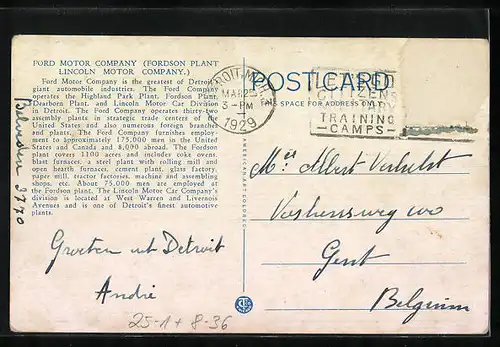 FORD MOTOR COMPANY (FORDSON PLANT
LINCOLN MOTOR COMPANY.)
Ford Motor Company is the greatest of Detroit's
giant automobile industries. The Ford Company
operates the Highland Park Plant, Fordson Plant,
Dearborn Plant, and Lincoln Motor Car Division
in Detroit. The Ford Company operates thirty-two
assembly plants in strategic trade centers of the
United States and also numerous foreign branches
and plants. The Ford Company furnishes employ-
ment to approximately 175,000 men in the United
States and Canada and 8,000 abroad. The Fordson
plant covers 1100 acres and includes coke ovens,
blast furnaces, a steel plant with rolling mill and
open hearth furnaces, cement plant, glass factory,
paper mill, tractor factories, motor and assembling
shops, etc. About 75,000 men are employed at
the Fordson Plant. The Lincoln Motor Car Company's
division is located at West Warren and Livernois
Avenues and is one of Detroit's finest automotive
plants.
3770
Groeten uit Detroit
André
25-1 + 8-36
POST CARD
SPACE FOR ADDRESS ONLY
DETROIT, MICH.
MAR 25
3-PM
1929
TRAINING
CAMPS
Albert Verhulst
Gent
Belgium